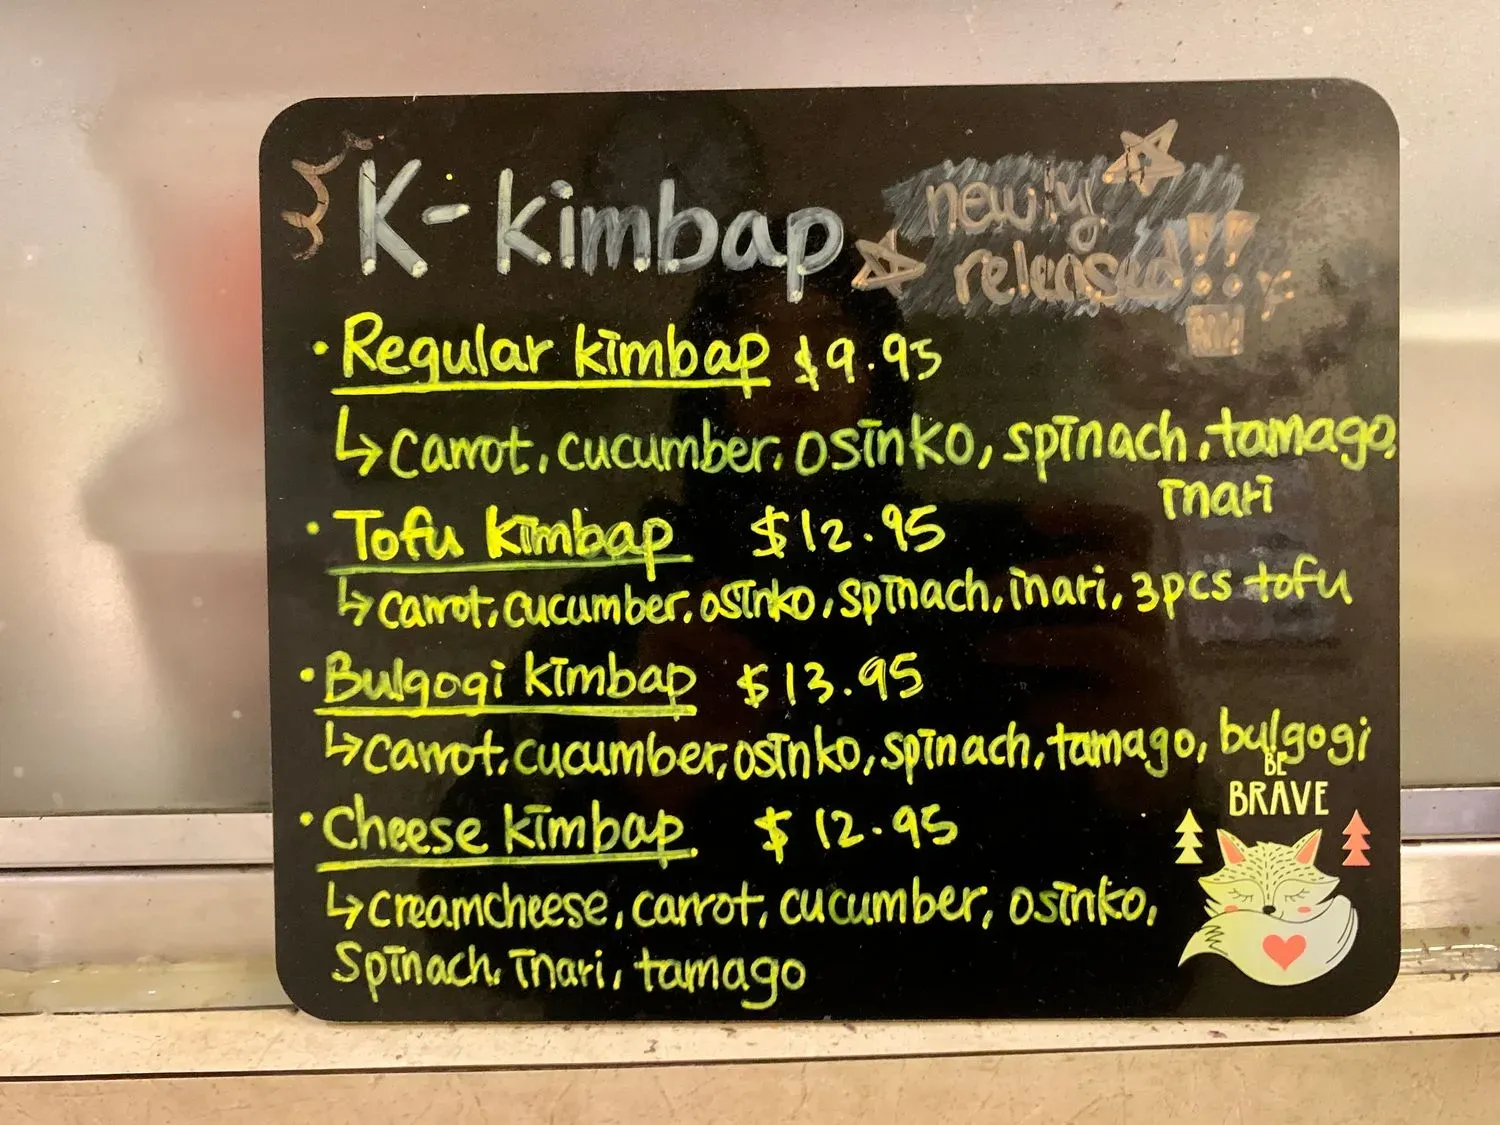 K-kimbap
newly
released!!
• Regular kimbap $9.95
↳ carrot, cucumber, osinko, spinach, tamago,
inari
• Tofu kimbap $12.95
↳ carrot, cucumber, osinko, spinach, inari, 3pcs tofu
• Bulgogi kimbap $13.95
↳ carrot, cucumber, osinko, spinach, tamago, bulgogi
• Cheese kimbap $12.95
↳ creamcheese, carrot, cucumber, osinko,
Spinach, inari, tamago
BE
BRAVE